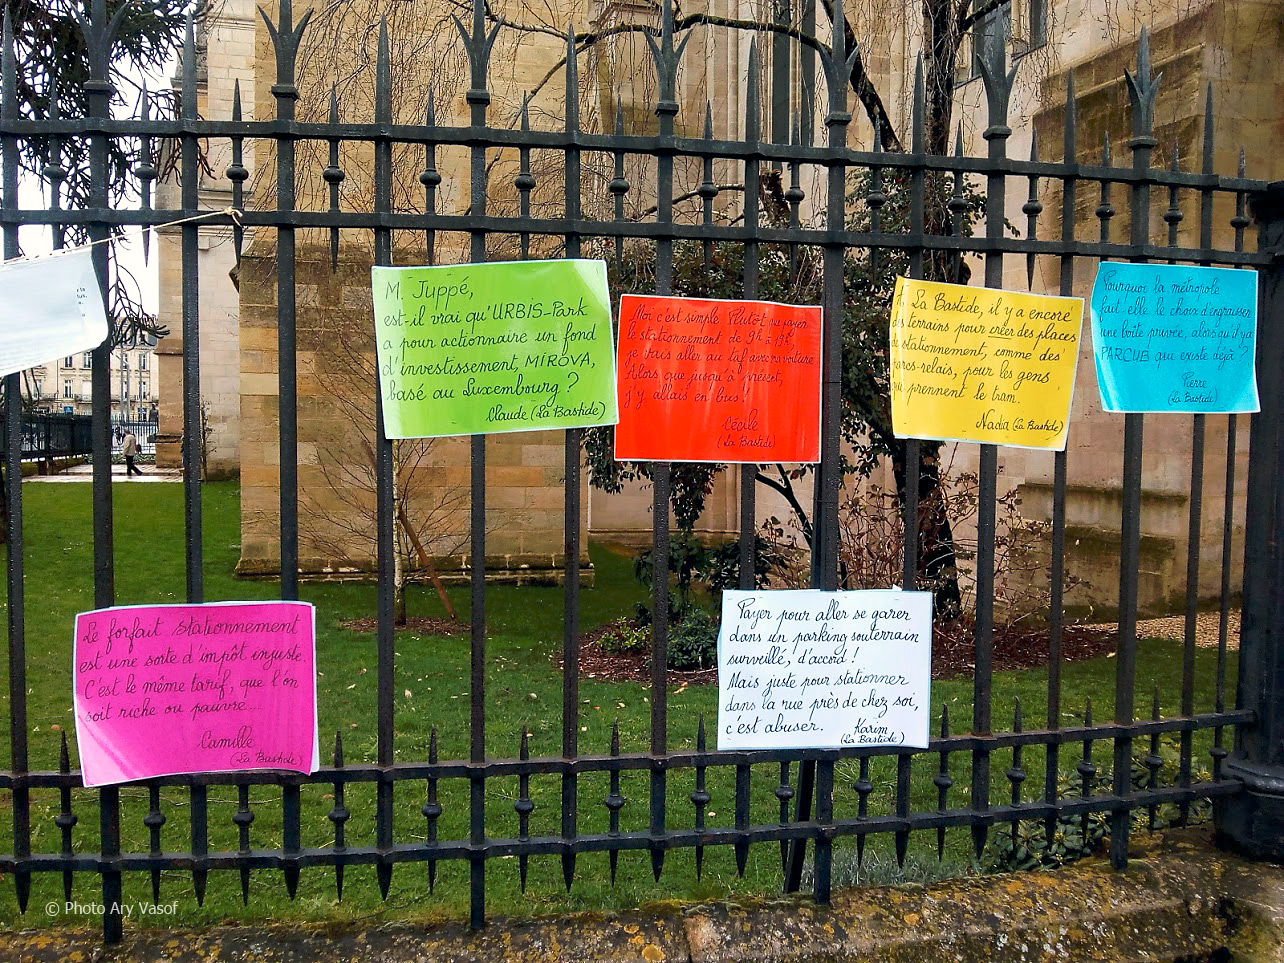 M. Juppé,
est-il vrai qu'URBIS-Park
a pour actionnaire un fond
d'investissement, MIROVA,
basé au Luxembourg ?
Claude (La Bastide)
Moi c'est simple. Plutôt que payer
le stationnement de 9h à 19h,
je vais aller au taf avec ma voiture.
Alors que jusqu'à présent,
j'y allais en bus !
Cécile
(La Bastide)
A La Bastide, il y a encore
des terrains pour créer des places
de stationnement, comme des
parcs-relais, pour les gens
qui prennent le tram.
Nadia (La Bastide)
Pourquoi la métropole
fait-elle le choix d'engraisser
une boîte privée, alors qu'il y a
PARCUB qui existe déjà ?
Pierre
(La Bastide)
Le forfait stationnement
est une sorte d'impôt injuste.
C'est le même tarif, que l'on
soit riche ou pauvre...
Camille
(La Bastide)
Payer pour aller se garer
dans un parking souterrain
surveillé, d'accord !
Mais juste pour stationner
dans la rue près de chez soi,
c'est abuser.
Karim
(La Bastide)
© Photo Ary Vasof